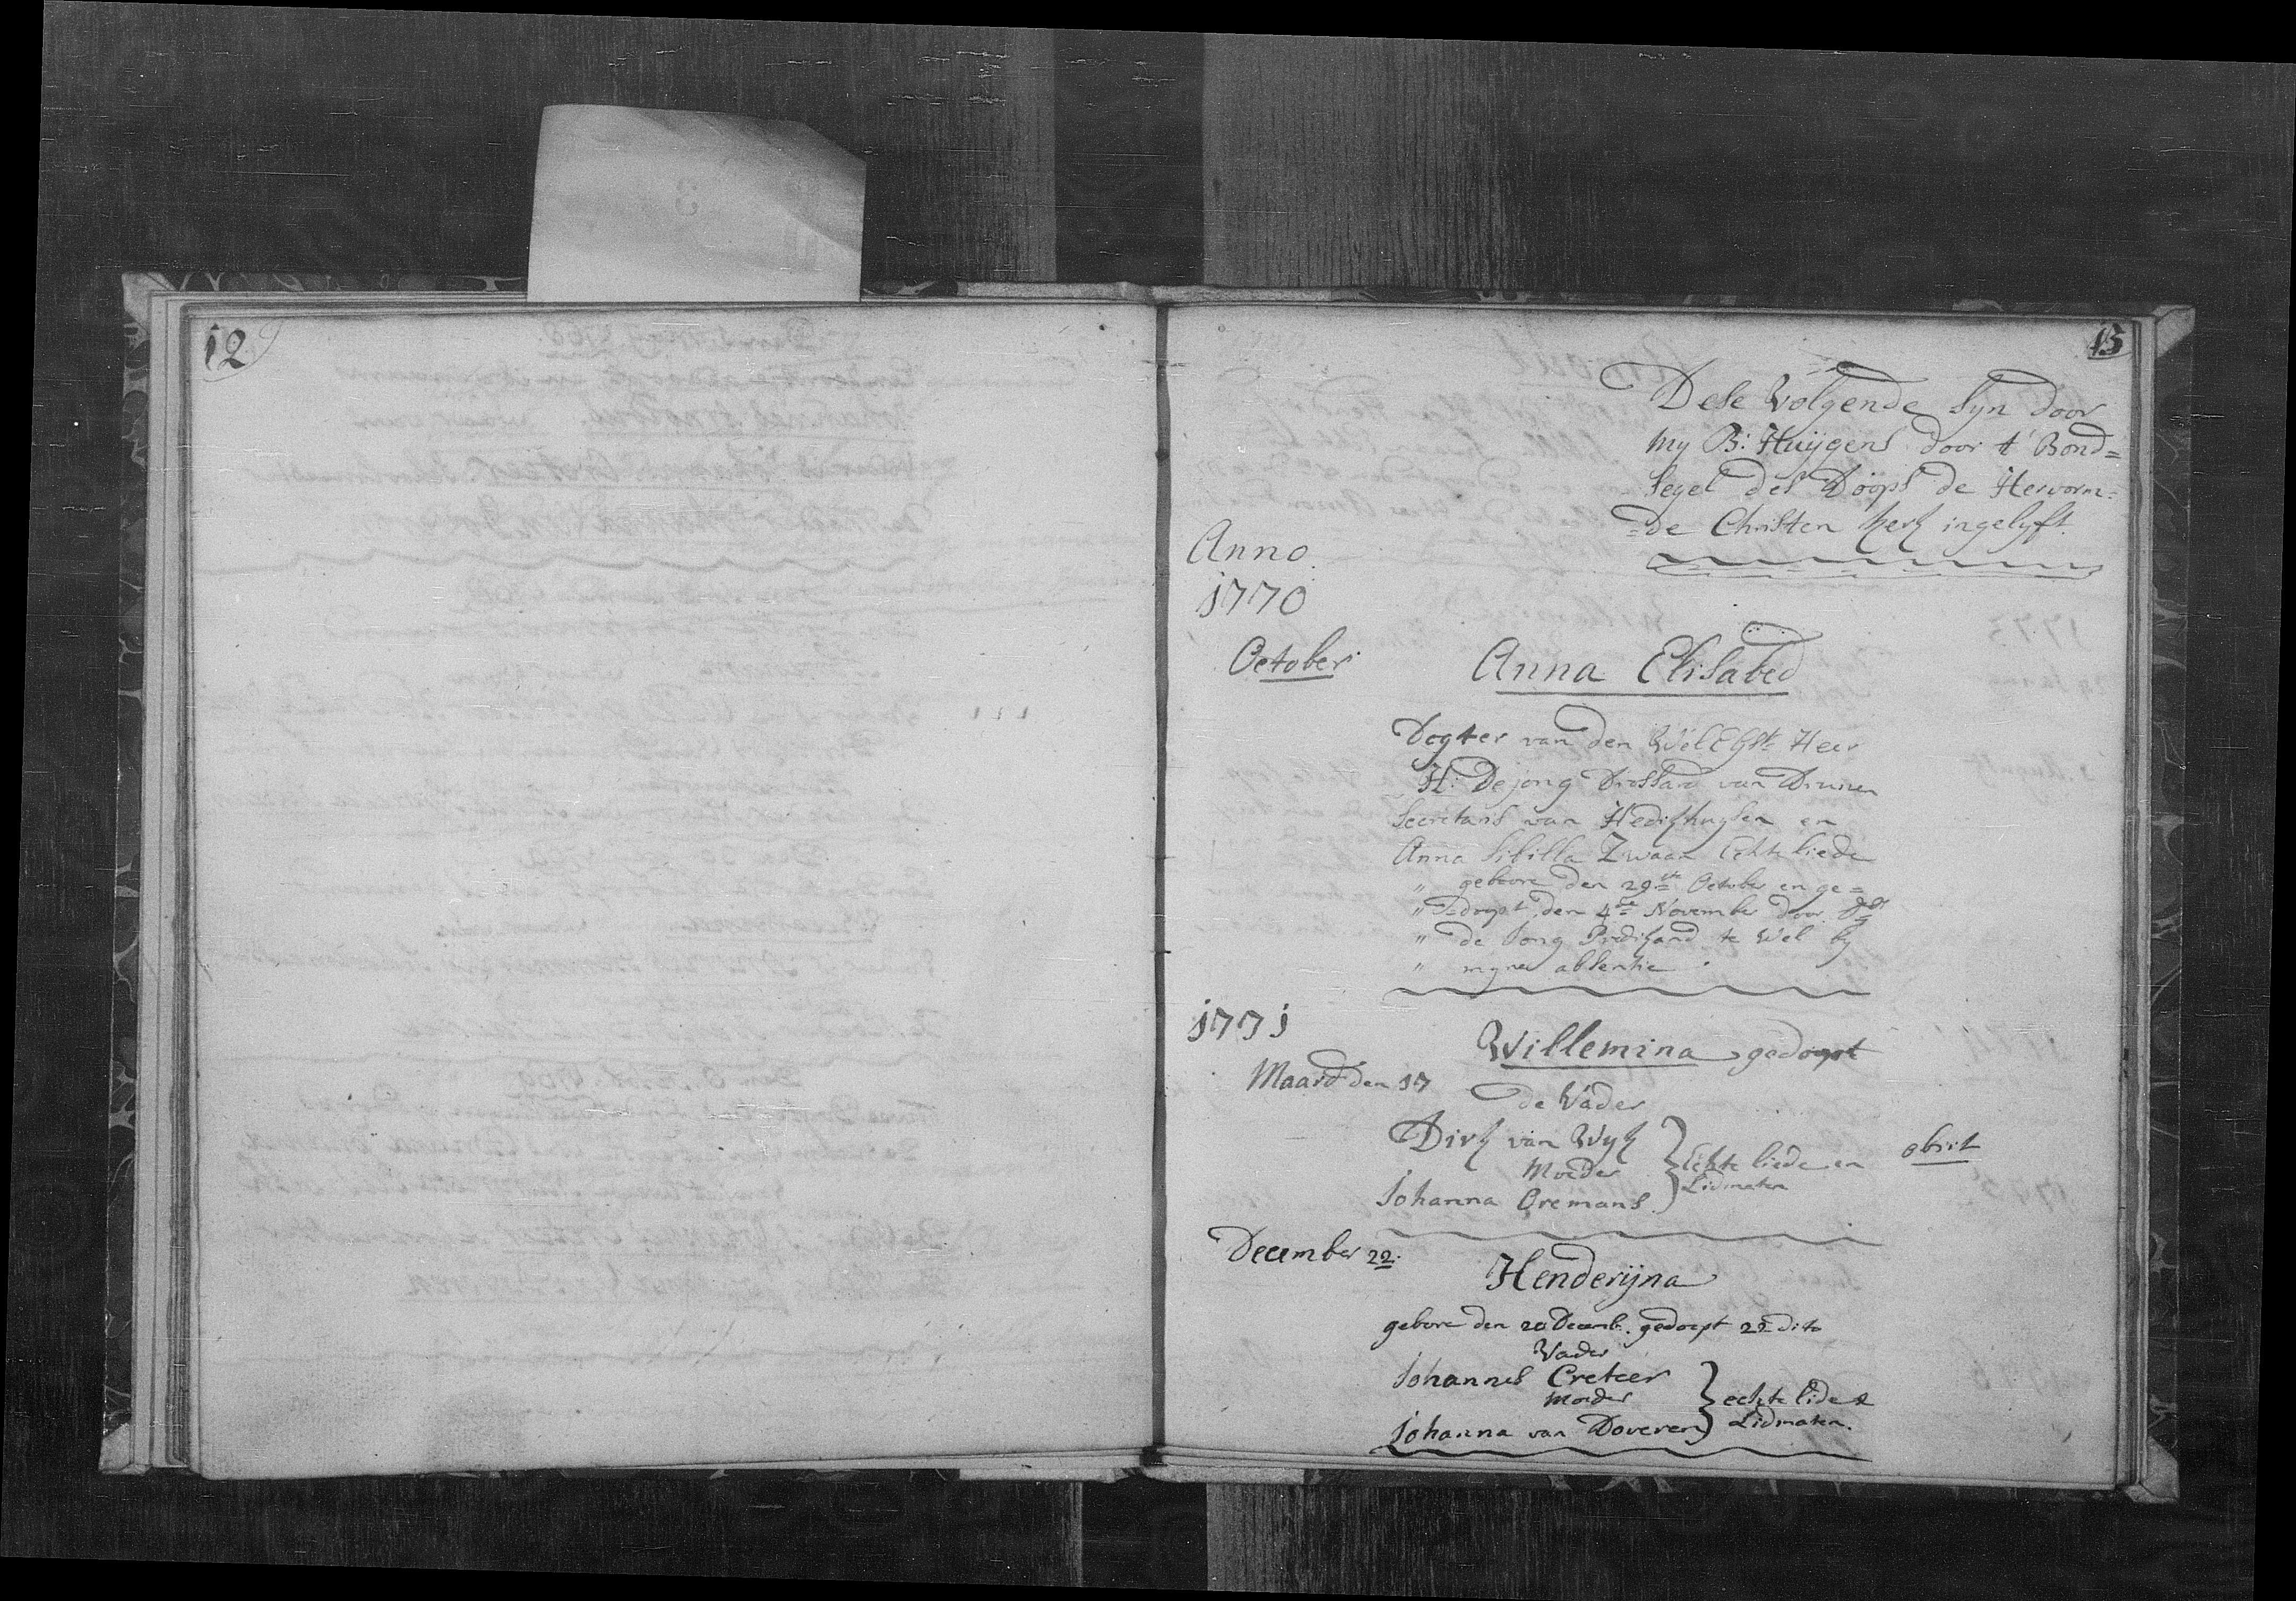 12
13
Dese Volgende syn door
my B: Huijgens door 't Bond=
segel des Doops de Hervorm=
=de Christen kerk ingelyft.
Anno
1770
October
Anna Elisabed
Dogter van den Wel Heer
H: De jong Drossard van Drunen
Secretaris van Hedikhuysen en
Anna Sibilla Zwaan Echte liede
" gebore den 29ste October en ge=
" =doopt den 4de November door
" de Jong Predikand te Wel by
" myne absentie.
1771
Willemina gedoopt
Maard den 17
de Vader
Dirk van Wyk
Moeder
Echte liede en
obiit
Lidmaten
Johanna Oremans.
December 22.
Henderijna
gebore den 20 Decemb. gedoopt 22 dito
Vader
Johannes Creteer
Moeder
echte lide &
Lidmaten.
Johanna van Doveren